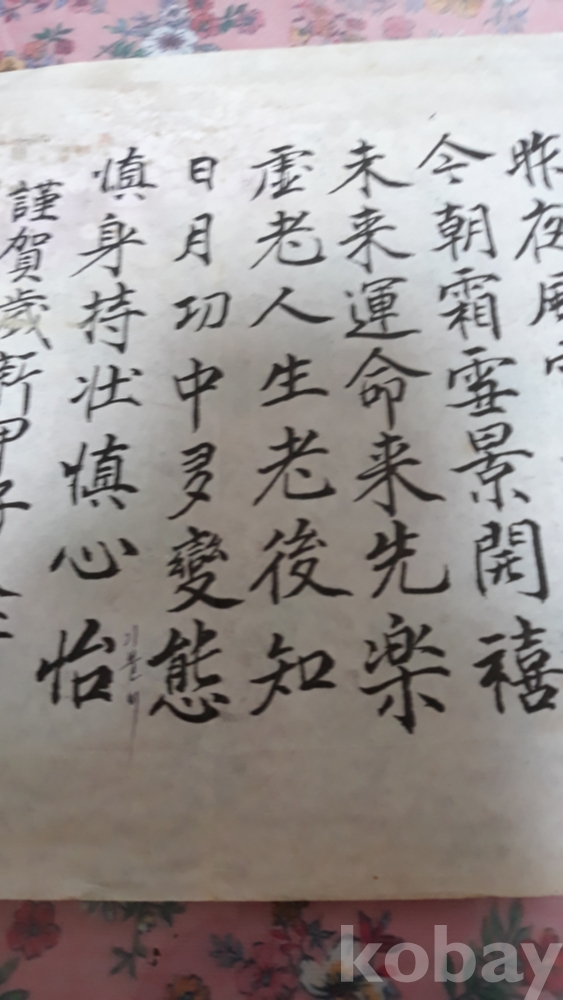 昨夜風
今朝霜雪景開禧
未来運命来先楽
虚老人生老後知
日月功中多變態
慎身持壮慎心怡
謹賀歲新甲子
kobay